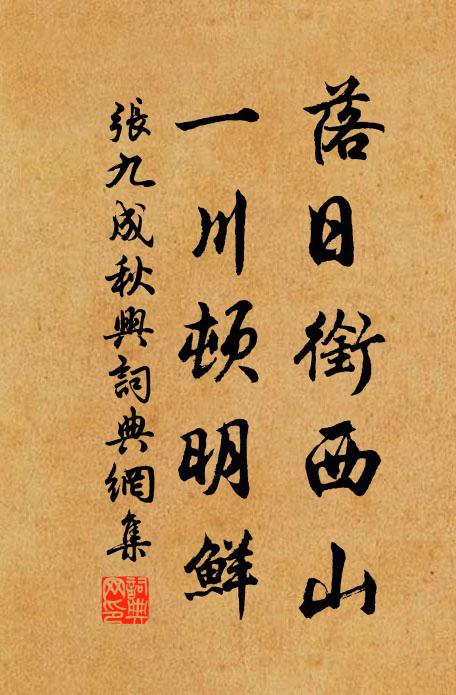 落日銜西山
一川頓明鮮
張九成秋興詞典網集
詞典網印